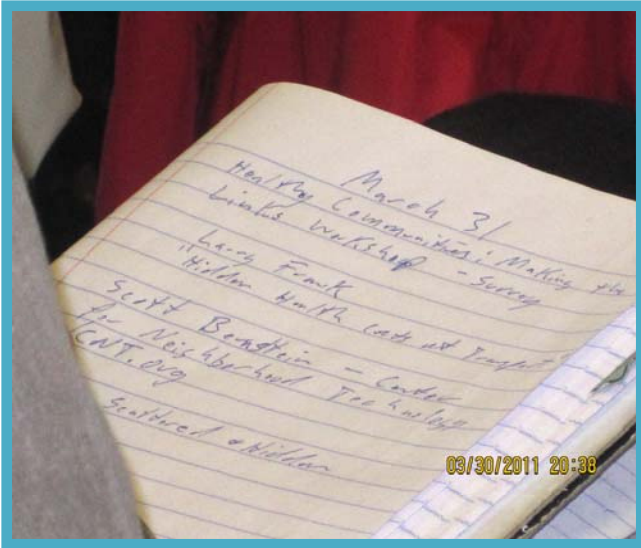 March 31
Healthy Communities: Making the
Links Workshop - Survey
Larry Frank
"Hidden Health Costs of Transport
Scott Bernstein - Center
for Neighborhood Technology
CNT.org
Scattered & Hidden
03/30/2011 20:38